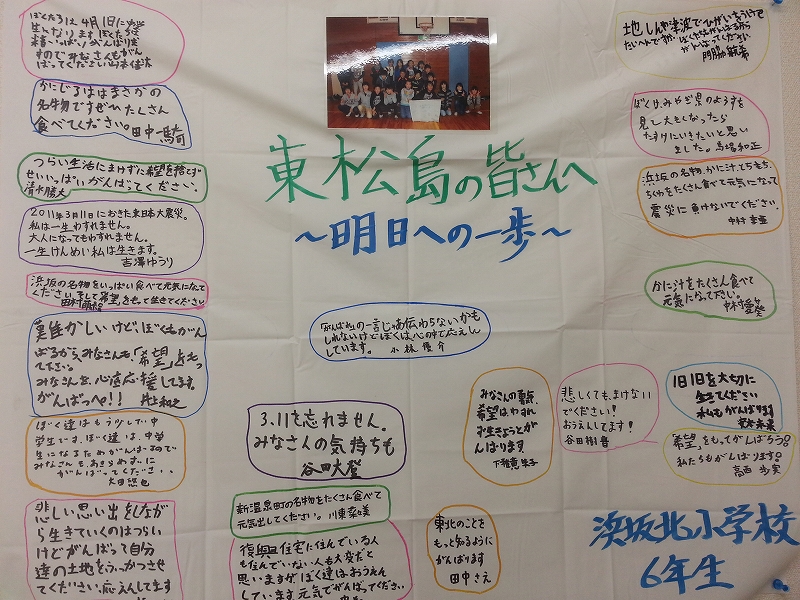 東松島の皆さんへ
～明日への一歩～
ぼくたちは4月1日に中学
生になります。ぼくたちは
精いっぱいがんばりま
すのでみなさんもがん
ばってください。
かにじるははまさかの
名物ですぜひたくさん
食べてください。田中一騎
つらい生活にまけずに希望を捨てず
せいいっぱいがんばってください。
清水勝太
2011年3月11日におきた東日本大震災。
私は一生わすれません。
大人になってもわすれません。
一生けんめい私は生きます。
吉澤ゆうり
浜坂の名物をいっぱい食べて元気になって
ください。そして希望をもって生きてください
難かしいけど、ぼくもがん
ばるから、みなさんも「希望」をもっ
て下さい。
みなさんを、心から応援してます。
がんばっぺ!!
ぼく達はもう少しで中
学生です。ぼく達は、中学
生になるためがんばるので
みなさんも、あきらめずに
がんばってください。
太田悠也
悲しい思い出をしなが
ら生きていくのはつらい
けどがんばって自分
達の土地をふっかつさせ
てください。応えんしてます
「がんばれ」の一言じゃあ伝わらないかも
しれないけどぼくは心の中で応えん
しています。 小林優介
3.11を忘れません。
みなさんの気持ちも
谷田大登
新温泉町の名物をたくさん食べて
元気出してください。川東菜美
復興住宅に住んでいる人
も住んでいない人も大変だと
思いますがぼく達はおうえん
しています元気でがんばってください
東北のことを
もっと知るように
がんばります
田中さえ
みなさんの事、
希望はわすれ
ず生きようとが
んばります
悲しくても、まけない
でください!
おうえんしてます!
谷田樹香
地しんや津波でひがいをうけて
たいへんですが、ぼくたちもがんばるから
がんばってください
門脇
ぼくは、みやぎ県のようすを
見て大きくなったら
たすけにいきたいと思い
ました。馬場和正
浜坂の名物、かに汁、とちもち、
ちくわをたくさん食べて元気になって
震災に負けないでください。
中村
かに汁をたくさん食べて
元気になって下さい。
1日1日を大切に
生きてください
私もがんばります
「希望」をもってがんばろう!
私たちもがんばります。
高西歩実
浜坂北小学校
6年生